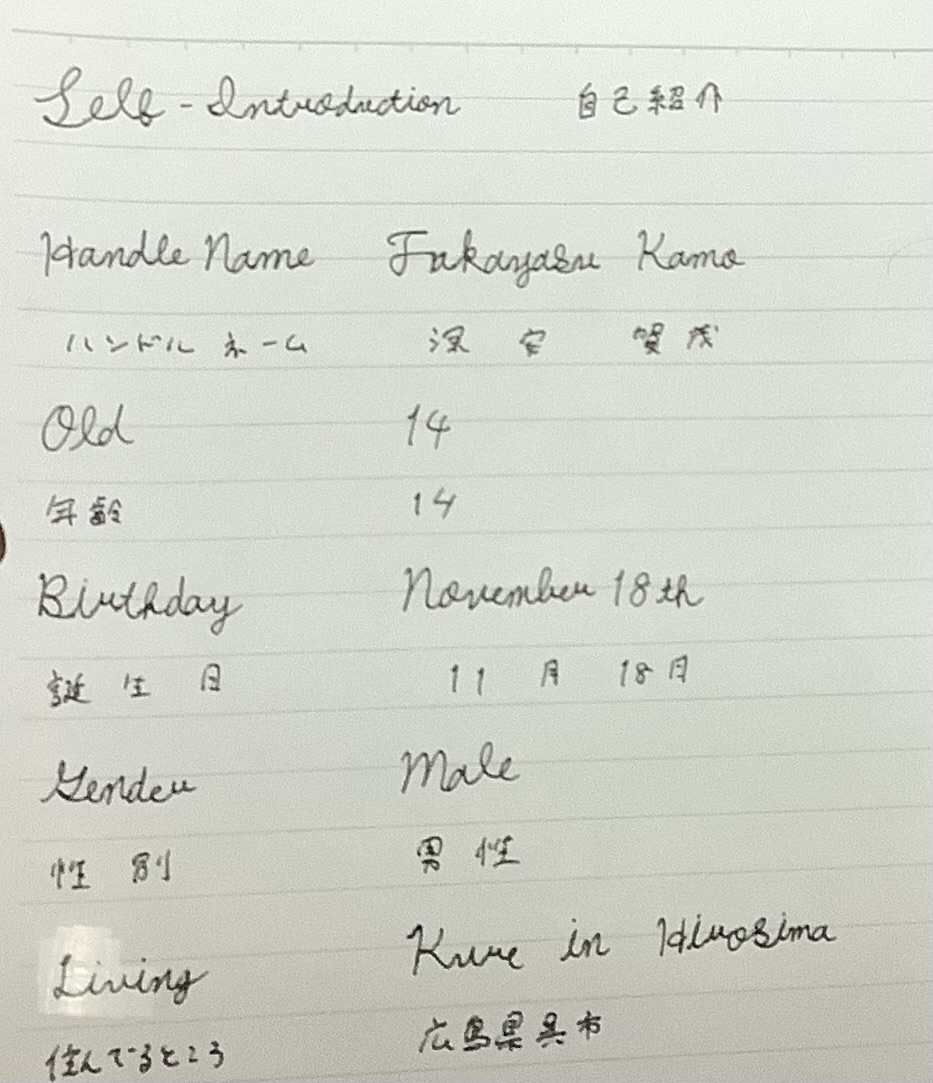 Self-Introduction 自己紹介
Handle Name Fukayasu Kamo
ハンドルネーム 深安 賀茂
Old 14
年齢 14
Birthday November 18th
誕生日 11月18日
Gender Male
性別 男性
Living Kure in Hirosima
住んでるところ 広島県呉市